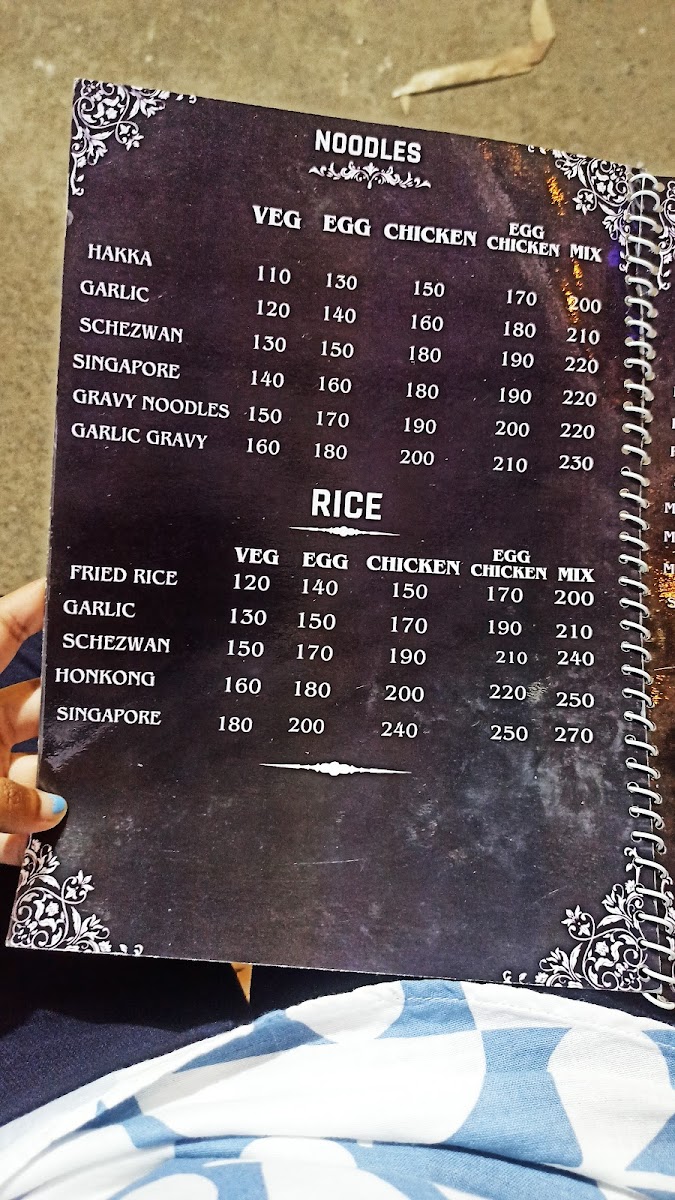 NOODLES
VEG EGG CHICKEN EGG CHICKEN MIX
HAKKA 110 130 150 170 200
GARLIC 120 140 160 180 210
SCHEZWAN 130 150 180 190 220
SINGAPORE 140 160 180 190 220
GRAVY NOODLES 150 170 190 200 220
GARLIC GRAVY 160 180 200 210 230
RICE
VEG EGG CHICKEN EGG CHICKEN MIX
FRIED RICE 120 140 150 170 200
GARLIC 130 150 170 190 210
SCHEZWAN 150 170 190 210 240
HONKONG 160 180 200 220 250
SINGAPORE 180 200 240 250 270